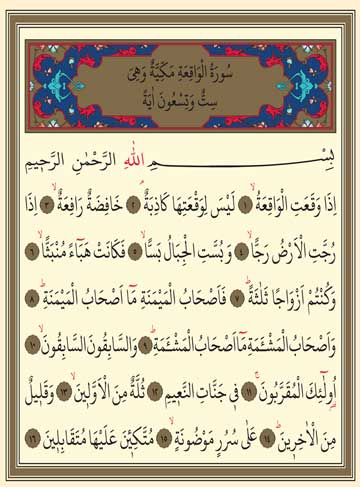 سُورَةُ الْوَاقِعَةِ مَكِّيَّةٌ وَهِيَ
سِتٌّ وَتِسْعُونَ اٰيَةً
بِسْمِ اللّٰهِ الرَّحْمٰنِ الرَّحٖيمِ
اِذَا وَقَعَتِ الْوَاقِعَةُۙ ﴿١﴾ لَيْسَ لِوَقْعَتِهَا كَاذِبَةٌۢ ﴿٢﴾ خَافِضَةٌ رَافِعَةٌۙ ﴿٣﴾ اِذَا
رُجَّتِ الْاَرْضُ رَجًّاۙ ﴿٤﴾ وَبُسَّتِ الْجِبَالُ بَسًّاۙ ﴿٥﴾ فَكَانَتْ هَبَٓاءً مُنْبَثًّاۙ ﴿٦﴾
وَكُنْتُمْ اَزْوَاجًا ثَلٰثَةًۜ ﴿٧﴾ فَاَصْحَابُ الْمَيْمَنَةِ مَٓا اَصْحَابُ الْمَيْمَنَةِۜ ﴿٨﴾
وَاَصْحَابُ الْمَشْـَٔمَةِ مَٓا اَصْحَابُ الْمَشْـَٔمَةِۜ ﴿٩﴾ وَالسَّابِقُونَ السَّابِقُونَۙ ﴿١٠﴾
اُو۬لٰٓئِكَ الْمُقَرَّبُونَۚ ﴿١١﴾ فٖي جَنَّاتِ النَّعٖيمِ ﴿١٢﴾ ثُلَّةٌ مِنَ الْاَوَّلٖينَۙ ﴿١٣﴾ وَقَلٖيلٌ
مِنَ الْاٰخِرٖينَۜ ﴿١٤﴾ عَلٰى سُرُرٍ مَوْضُونَةٍۙ ﴿١٥﴾ مُتَّكِـٖٔينَ عَلَيْهَا مُتَقَابِلٖينَ ﴿١٦﴾